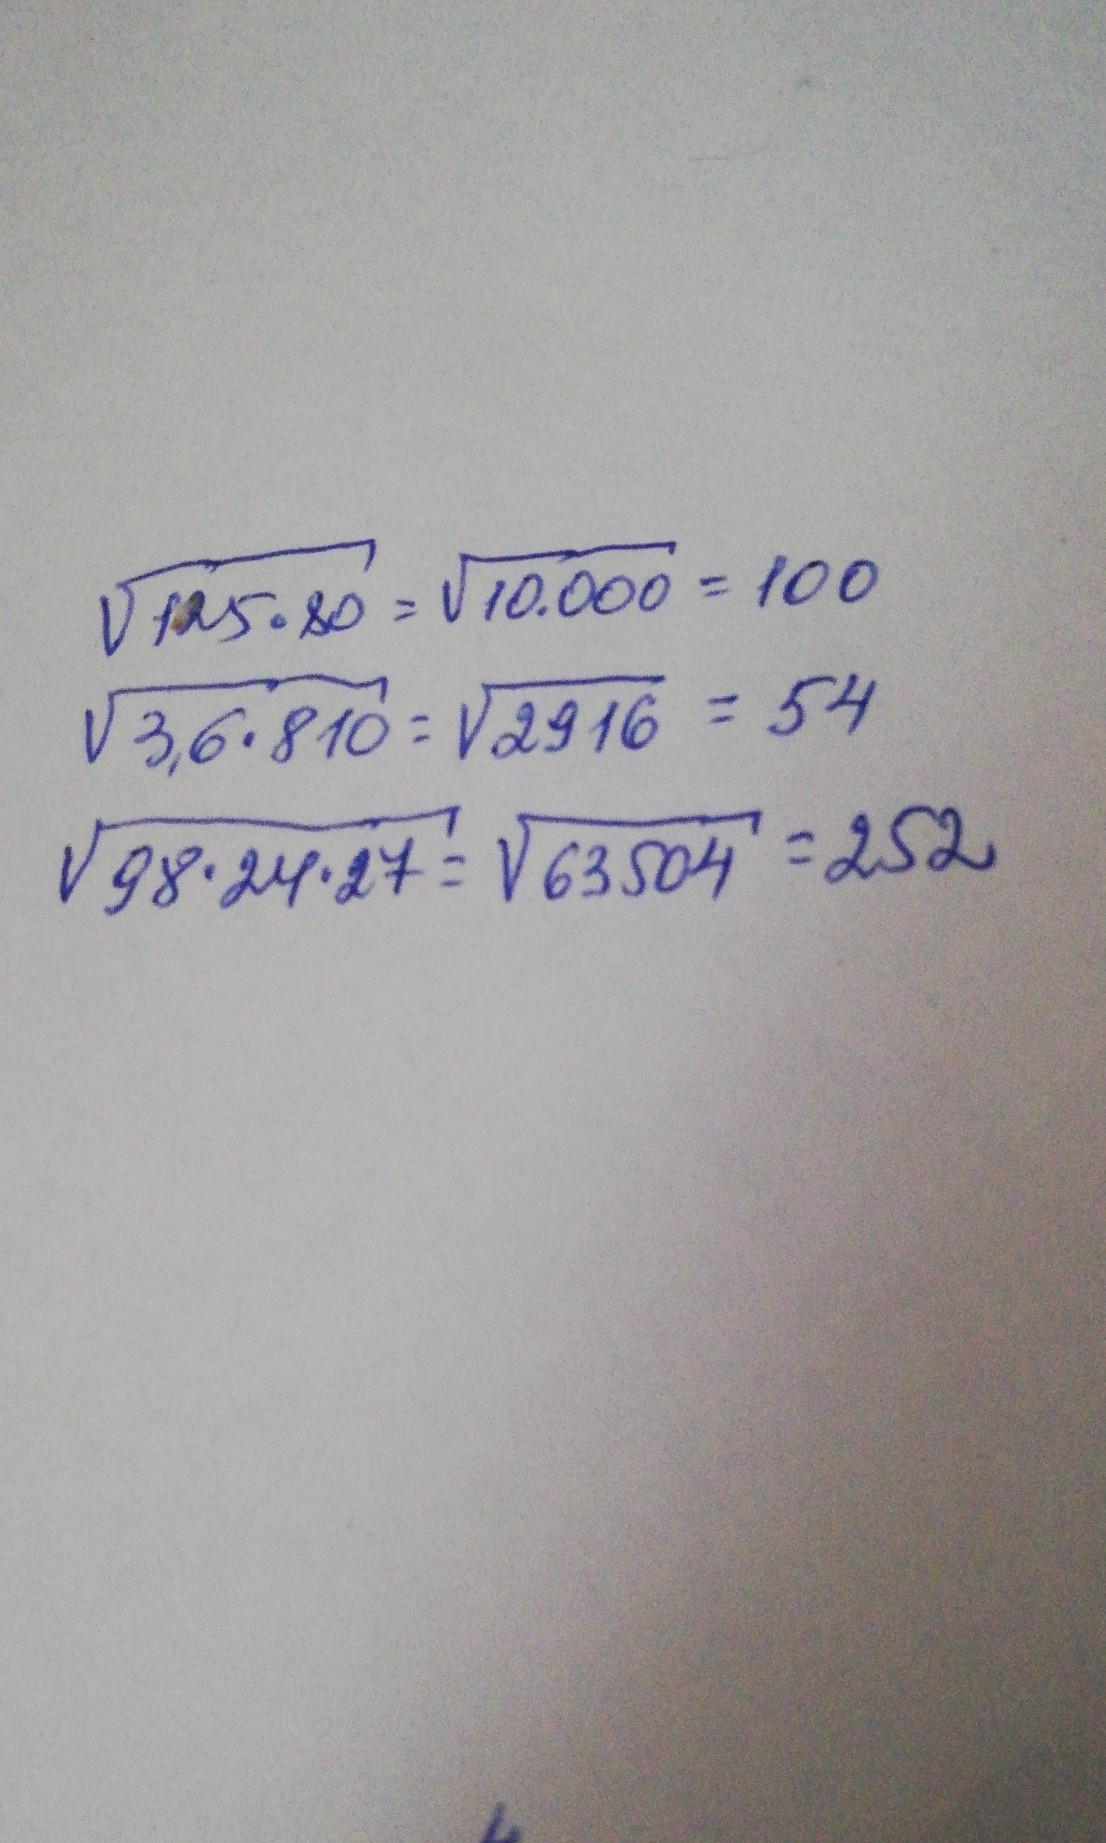 √125·80 = √10.000 = 100
√3,6·810 = √2916 = 54
√98·24·27 = √63504 = 252